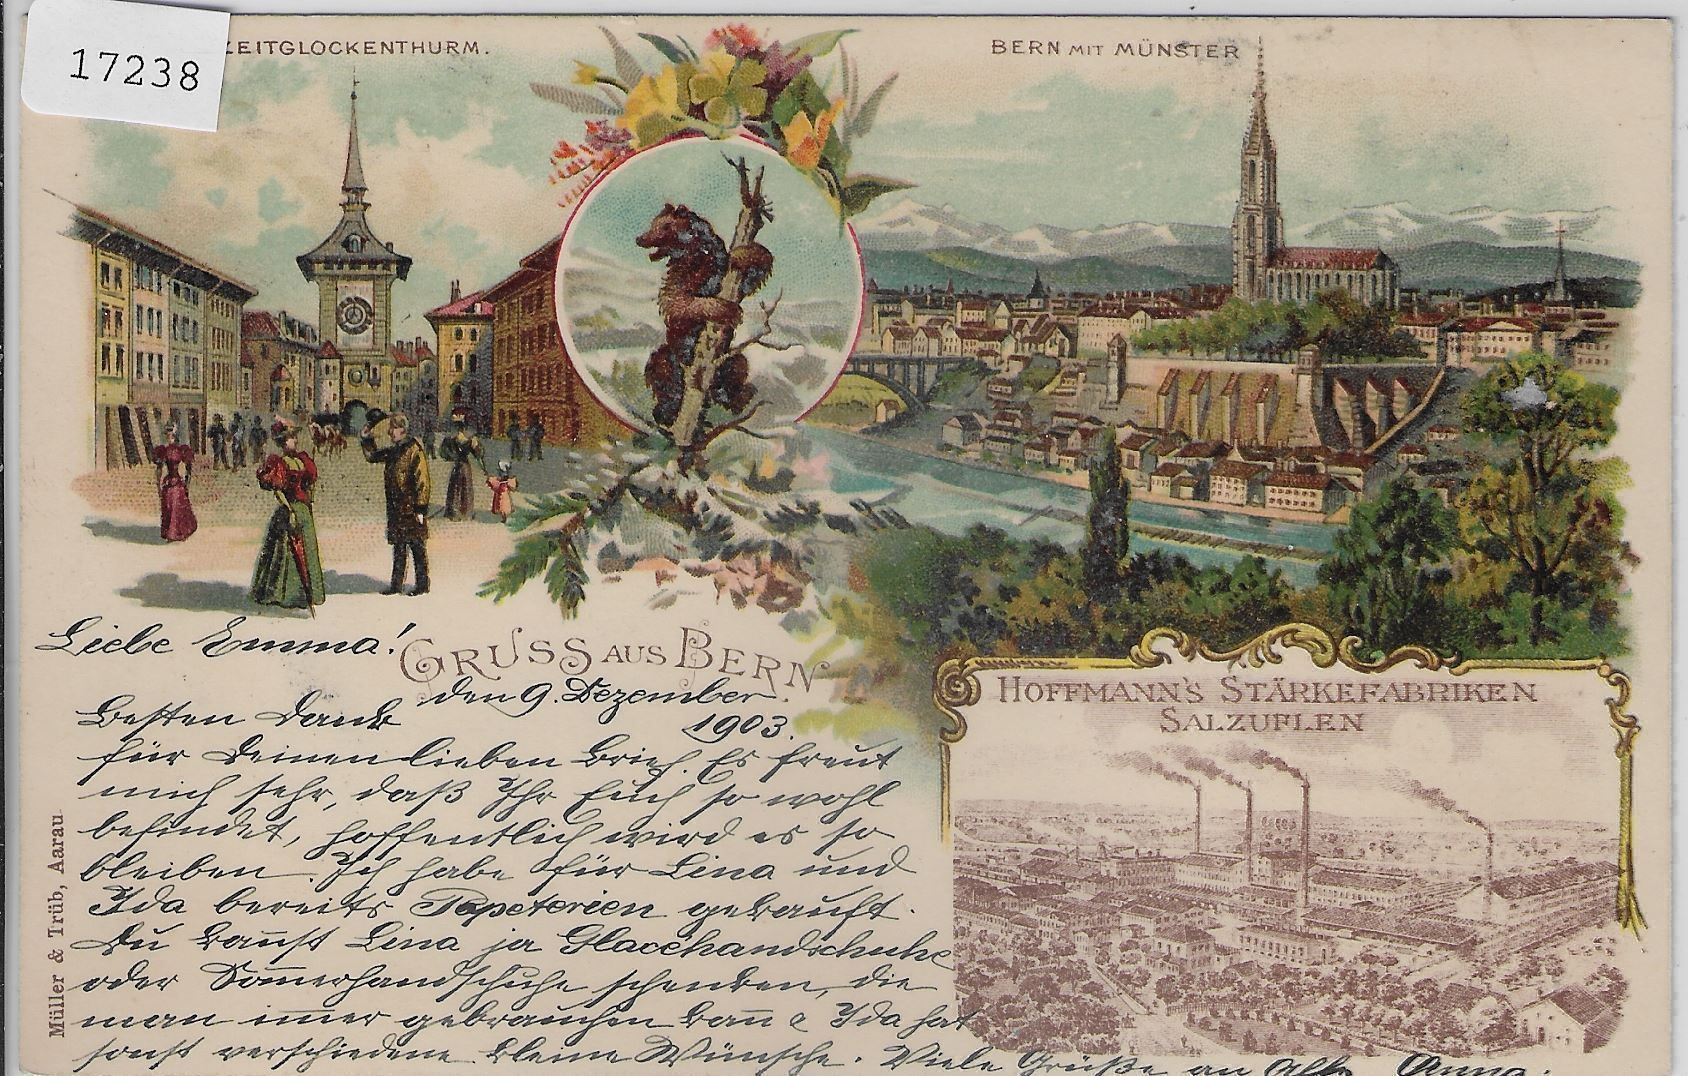 17238
ZEITGLOCKENTHURM.
BERN MIT MÜNSTER
GRUSS AUS BERN
HOFFMANN'S STÄRKEFABRIKEN
SALZUFLEN
Müller & Trüb, Aarau
Liebe Emma!
den 9. Dezember
1903.
Besten Dank
für Deinen lieben Brief. Es freut
mich sehr, daß Ihr Euch so wohl
befindet, hoffentlich wird es so
bleiben. Ich habe für Lina und
Ida bereits Papeterien gekauft.
Du kan̄st Lina ja Glacéhandschuhe
oder Som̄erhandschuhe schenken, die
man im̄er gebrauchen kan̄ & Ida hat
sonst verschiedene kleine Wünsche. Viele Grüße an Alle Anna.